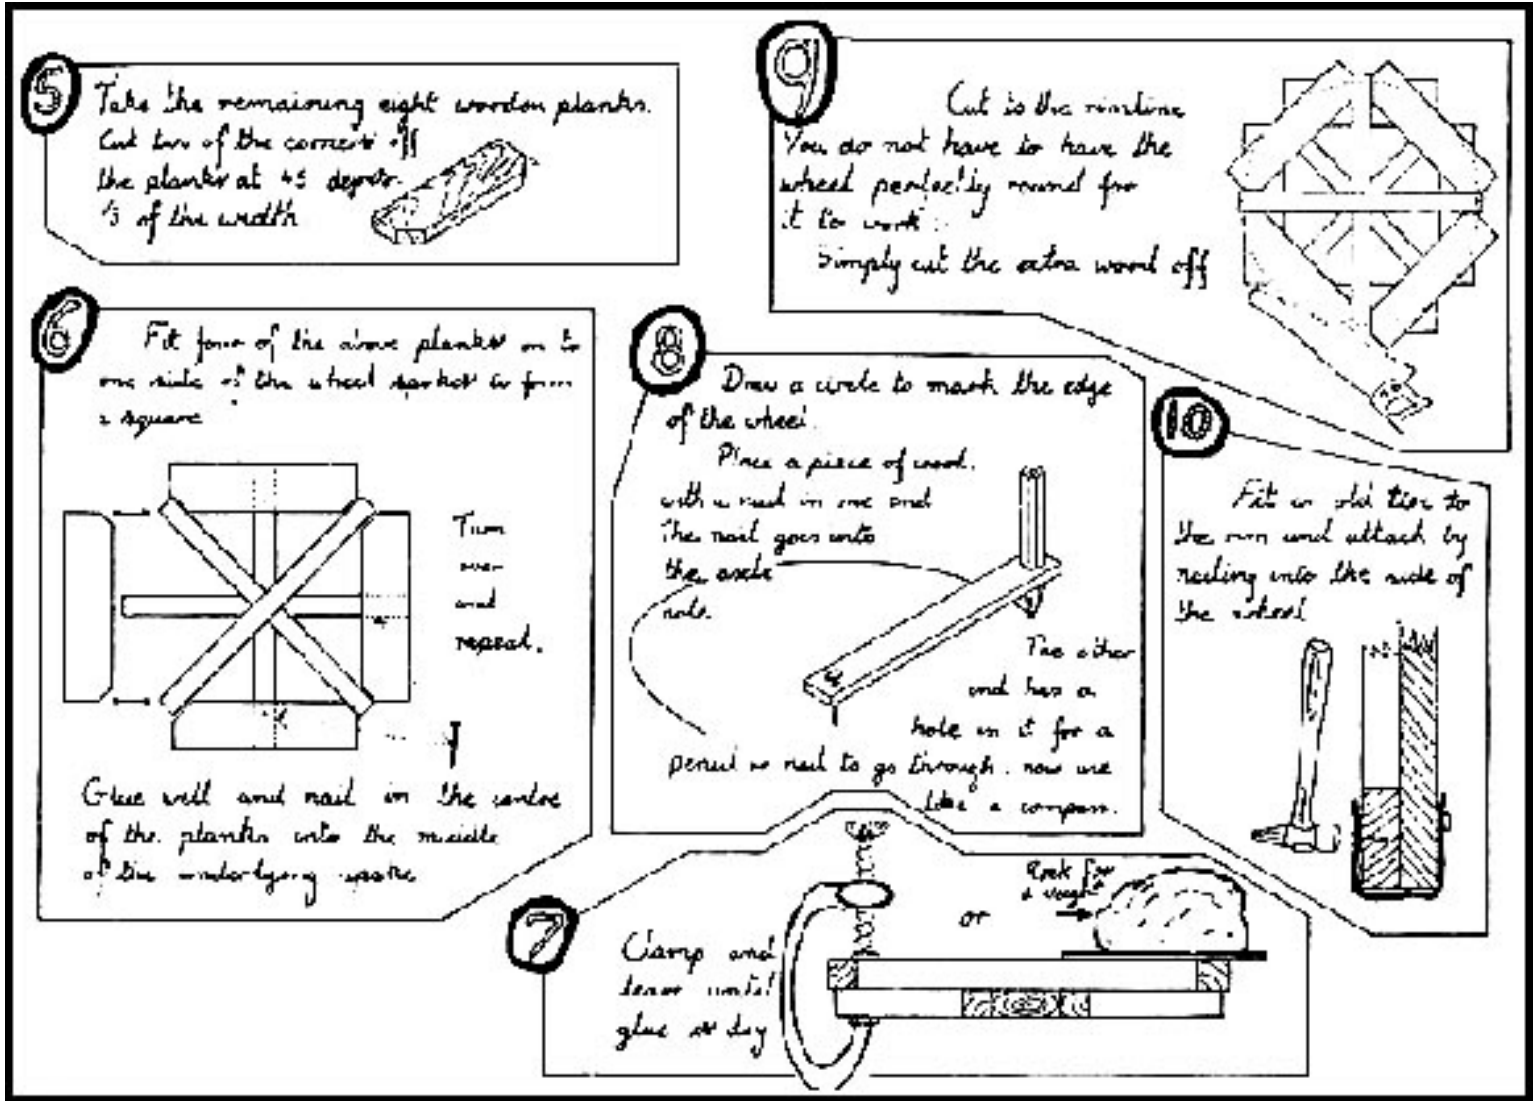 5
Take the remaining eight wooden planks.
Cut two of the corners off
the planks at 45 degrees.
⅓ of the width
6
Fit four of the above planks on to
one side of the wheel spokes to form
a square
Turn
over
and
repeat.
Glue well and nail in the centre
of the planks into the middle
of the underlying spoke
7
Clamp and
leave until
glue is dry
or
Rock for
a weight
8
Draw a circle to mark the edge
of the wheel.
Place a piece of wood.
with a nail in one end
The nail goes into
the axle
hole.
The other
end has a
hole in it for a
pencil or nail to go through. now use
like a compass.
9
Cut to the rimline
You do not have to have the
wheel perfectly round for
it to work.
Simply cut the extra wood off
10
Fit an old tire to
the rim and attach by
nailing into the side of
the wheel